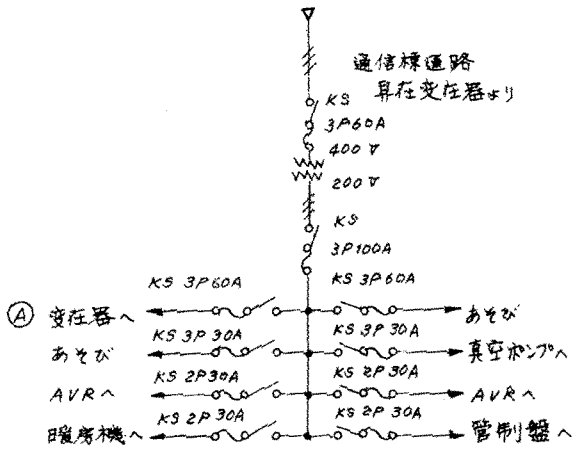 通信棟通路
昇在変在器より
KS
3P60A
400V
200V
KS
3P100A
KS 3P60A KS 3P60A
Ⓐ 変在器へ あそび
KS 3P 30A KS 3P 30A
あそび 真空ポンプへ
KS 2P30A KS 2P 30A
AVRへ AVRへ
KS 2P 30A KS 2P 30A
暖房機へ 管制盤へ